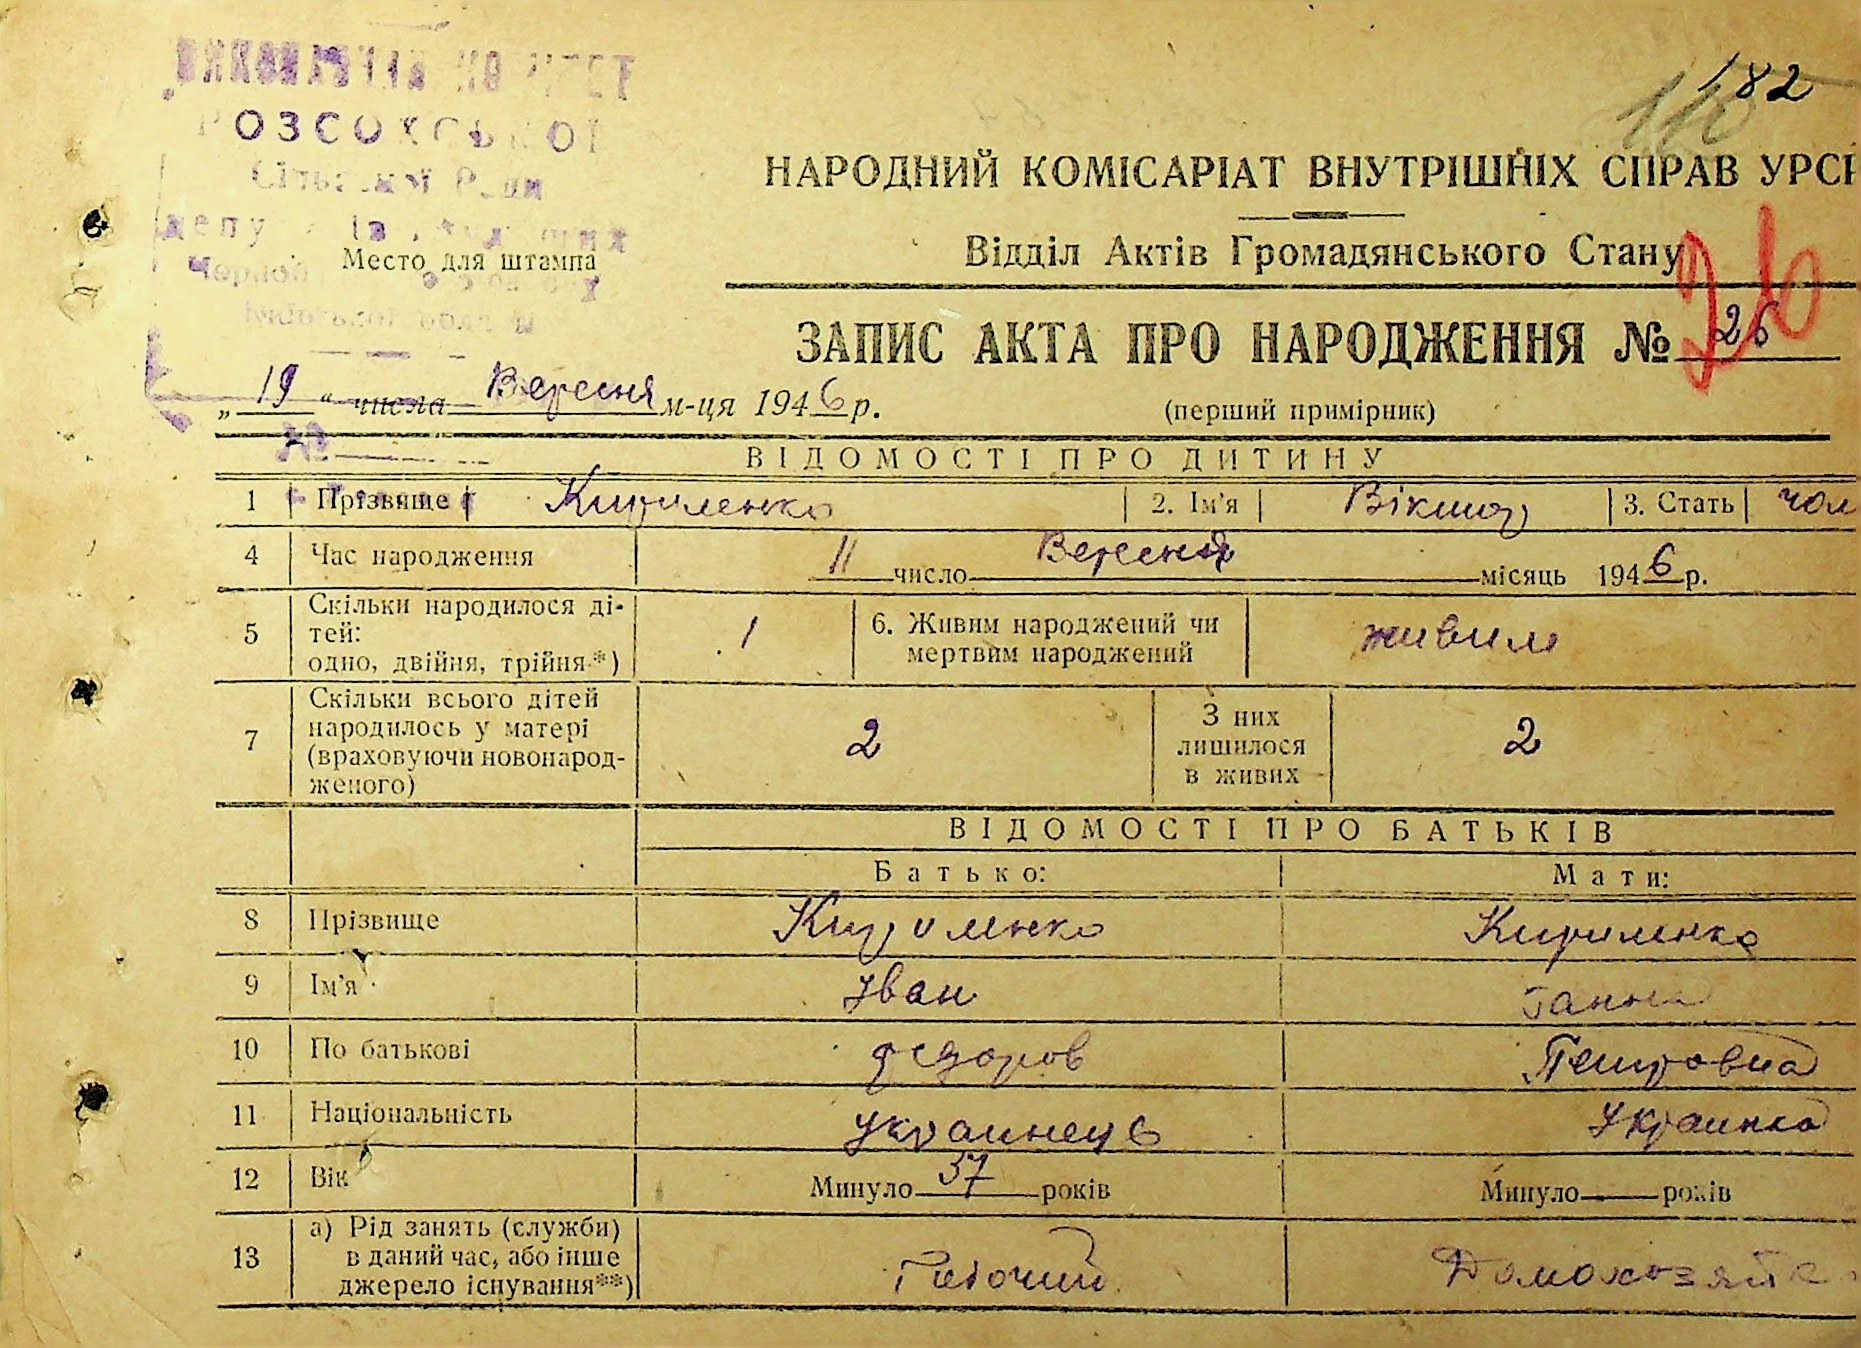 182
РОЗСОХСЬКОЇ
Сільської Ради
Место для штампа
НАРОДНИЙ КОМІСАРІАТ ВНУТРІШНІХ СПРАВ УРСР
Відділ Актів Громадянського Стану
26
ЗАПИС АКТА ПРО НАРОДЖЕННЯ № 26
„19“ числа Вересня м-ця 1946 р.
(перший примірник)
ВІДОМОСТІ ПРО ДИТИНУ
1 Прізвище Кириленко 2. Ім'я Віктор 3. Стать чол
4 Час народження 11 число Вересня місяць 1946 р.
5 Скільки народилося ді-
тей:
одно, двійня, трійня*) 1 6. Живим народжений чи
мертвим народжений живим
7 Скільки всього дітей
народилось у матері
(враховуючи новонарод-
женого) 2 З них
лишилося
в живих 2
ВІДОМОСТІ ПРО БАТЬКІВ
Батько: Мати:
8 Прізвище Кириленко Кириленко
9 Ім'я Іван Ганна
10 По батькові Федоров Петровна
11 Національність Украинець Украинка
12 Вік Минуло 37 років Минуло років
13 а) Рід занять (служби)
в даний час, або інше
джерело існування**) Рабочий Домохозяйка